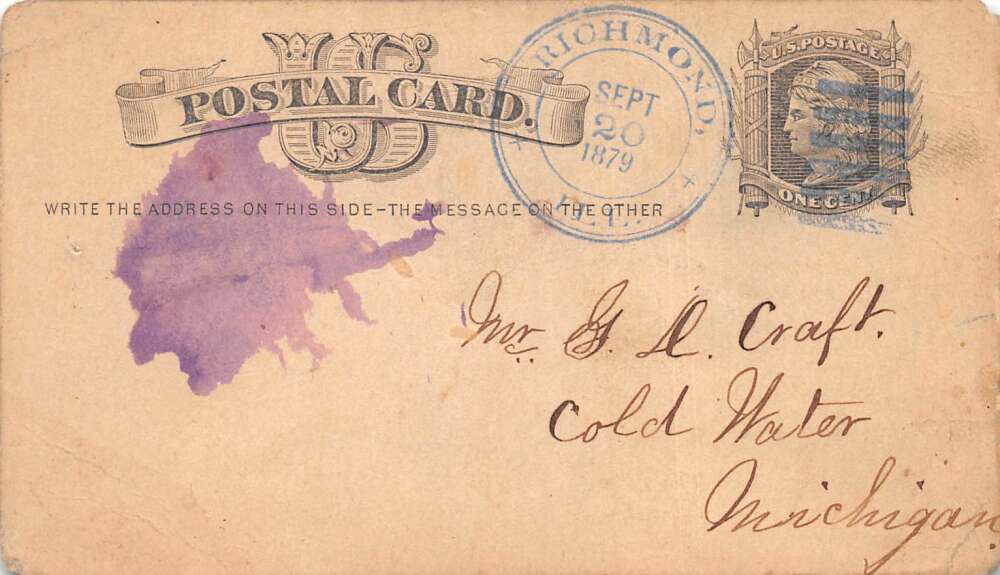 US
POSTAL CARD.
WRITE THE ADDRESS ON THIS SIDE–THE MESSAGE ON THE OTHER
RICHMOND,
SEPT
20
1879
ILL.
U.S. POSTAGE
ONE CENT
Mr. G. D. Craft.
Cold Water
Michigan.